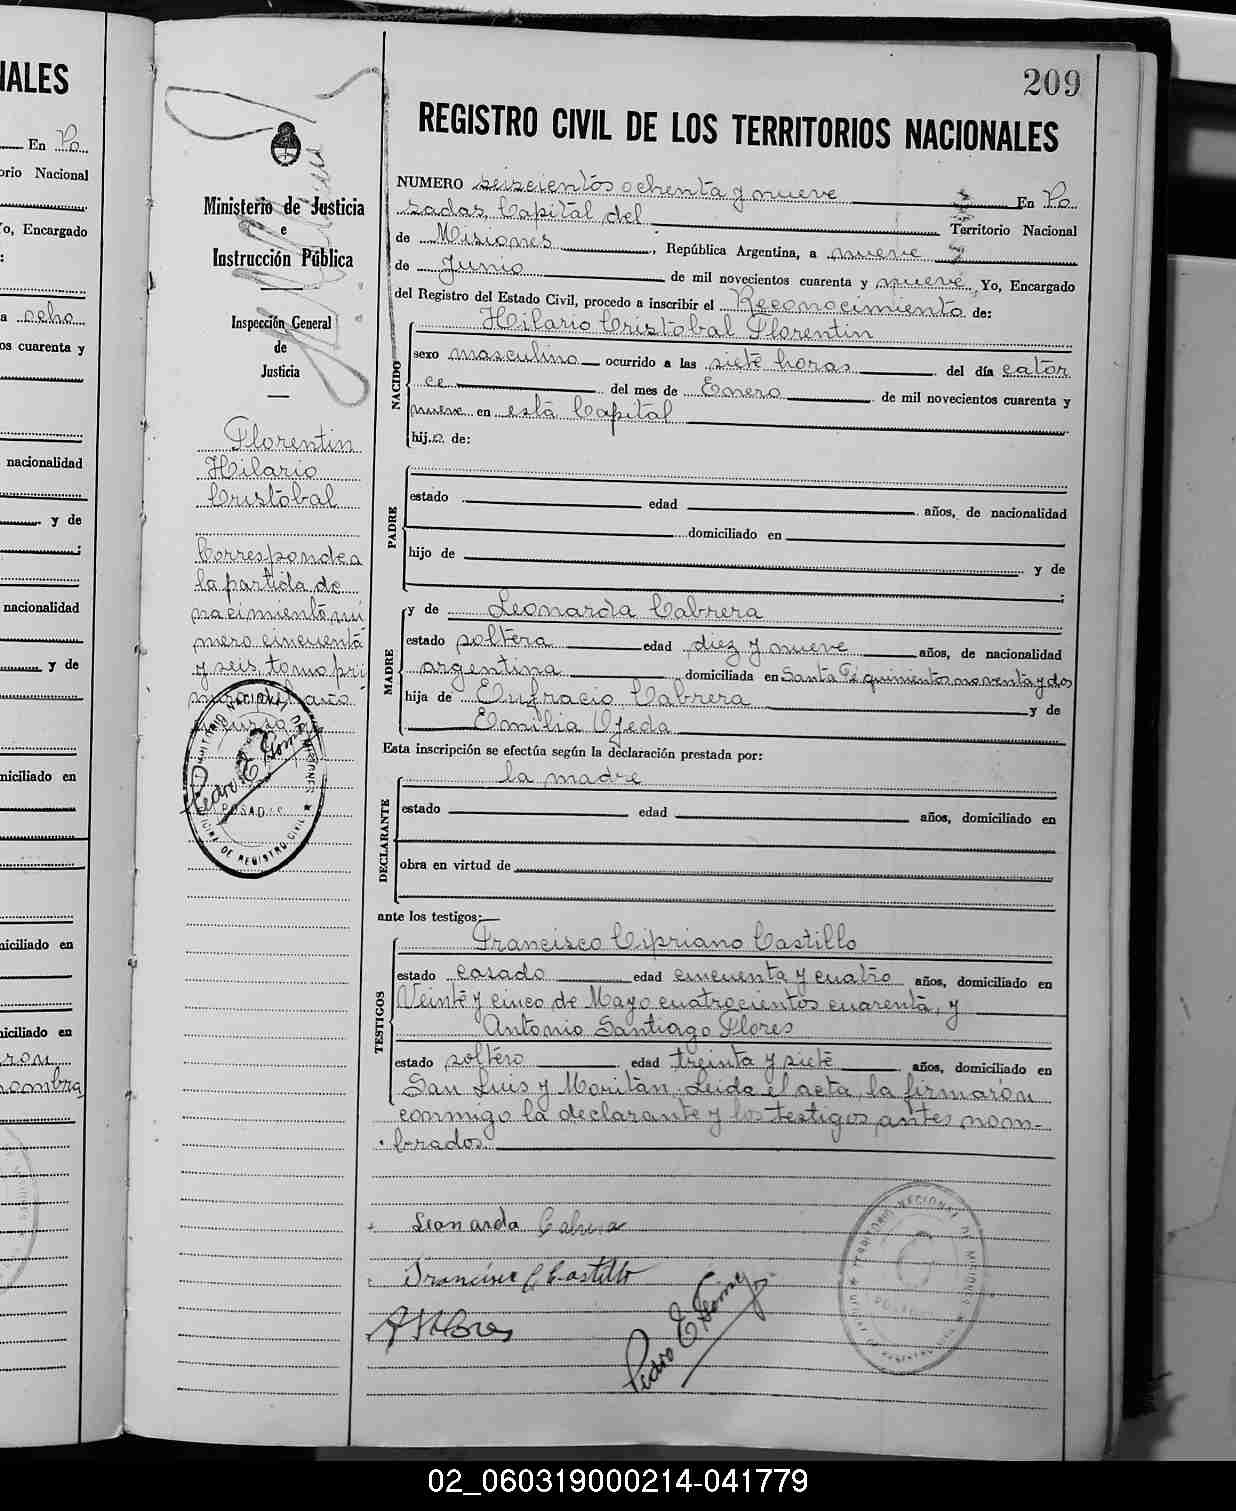 NALES
En Po
orio Nacional
o, Encargado
:
a ocho
os cuarenta y
nacionalidad
y de
nacionalidad
y de
niciliado en
niciliado en
niciliado en
ron
nombra
209
REGISTRO CIVIL DE LOS TERRITORIOS NACIONALES
Ministerio de Justicia
e
Instrucción Pública
Inspección General
de
Justicia
Florentin
Hilario
Cristóbal
Corresponde a
la partida de
nacimiento nú
mero cincuenta
y seis, tomo pri
TERRITORIO NACIONAL DE MISIONES
Pedro E. Gomez
POSADAS
OFICINA DE REGISTRO CIVIL
NUMERO seiscientos ochenta y nueve En Po
sadas, Capital del Territorio Nacional
de Misiones, República Argentina, a nueve
de Junio de mil novecientos cuarenta y nueve, Yo, Encargado
del Registro del Estado Civil, procedo a inscribir el Reconocimiento de:
NACIDO
Hilario Cristóbal Florentin
sexo masculino ocurrido a las siete horas del día cator
ce del mes de Enero de mil novecientos cuarenta y
nueve en esta Capital
hij.o de:
PADRE
estado edad años, de nacionalidad
domiciliado en
hijo de y de
;
MADRE
y de Leonarda Cabrera
estado soltera edad diez y nueve años, de nacionalidad
argentina domiciliada en Santa Fé quinientos noventa y dos
hija de Eufracio Cabrera y de
Emilia Ojeda
Esta inscripción se efectúa según la declaración prestada por:
DECLARANTE
la madre
estado edad años, domiciliado en
obra en virtud de
ante los testigos:
TESTIGOS
Francisco Cipriano Castillo
estado casado edad cincuenta y cuatro años, domiciliado en
Veinte y cinco de Mayo cuatrocientos cuarenta, y
Antonio Santiago Flores
estado soltero edad treinta y siete años, domiciliado en
San Luis y Moritán. Leida el acta, la firmarón
conmigo la declarante y los testigos antes nom-
brados.
Leonarda Cabrera
Francisco C Castillo
A S Flores
Pedro E. Gomez
TERRITORIO NACIONAL DE MISIONES
02_060319000214-041779